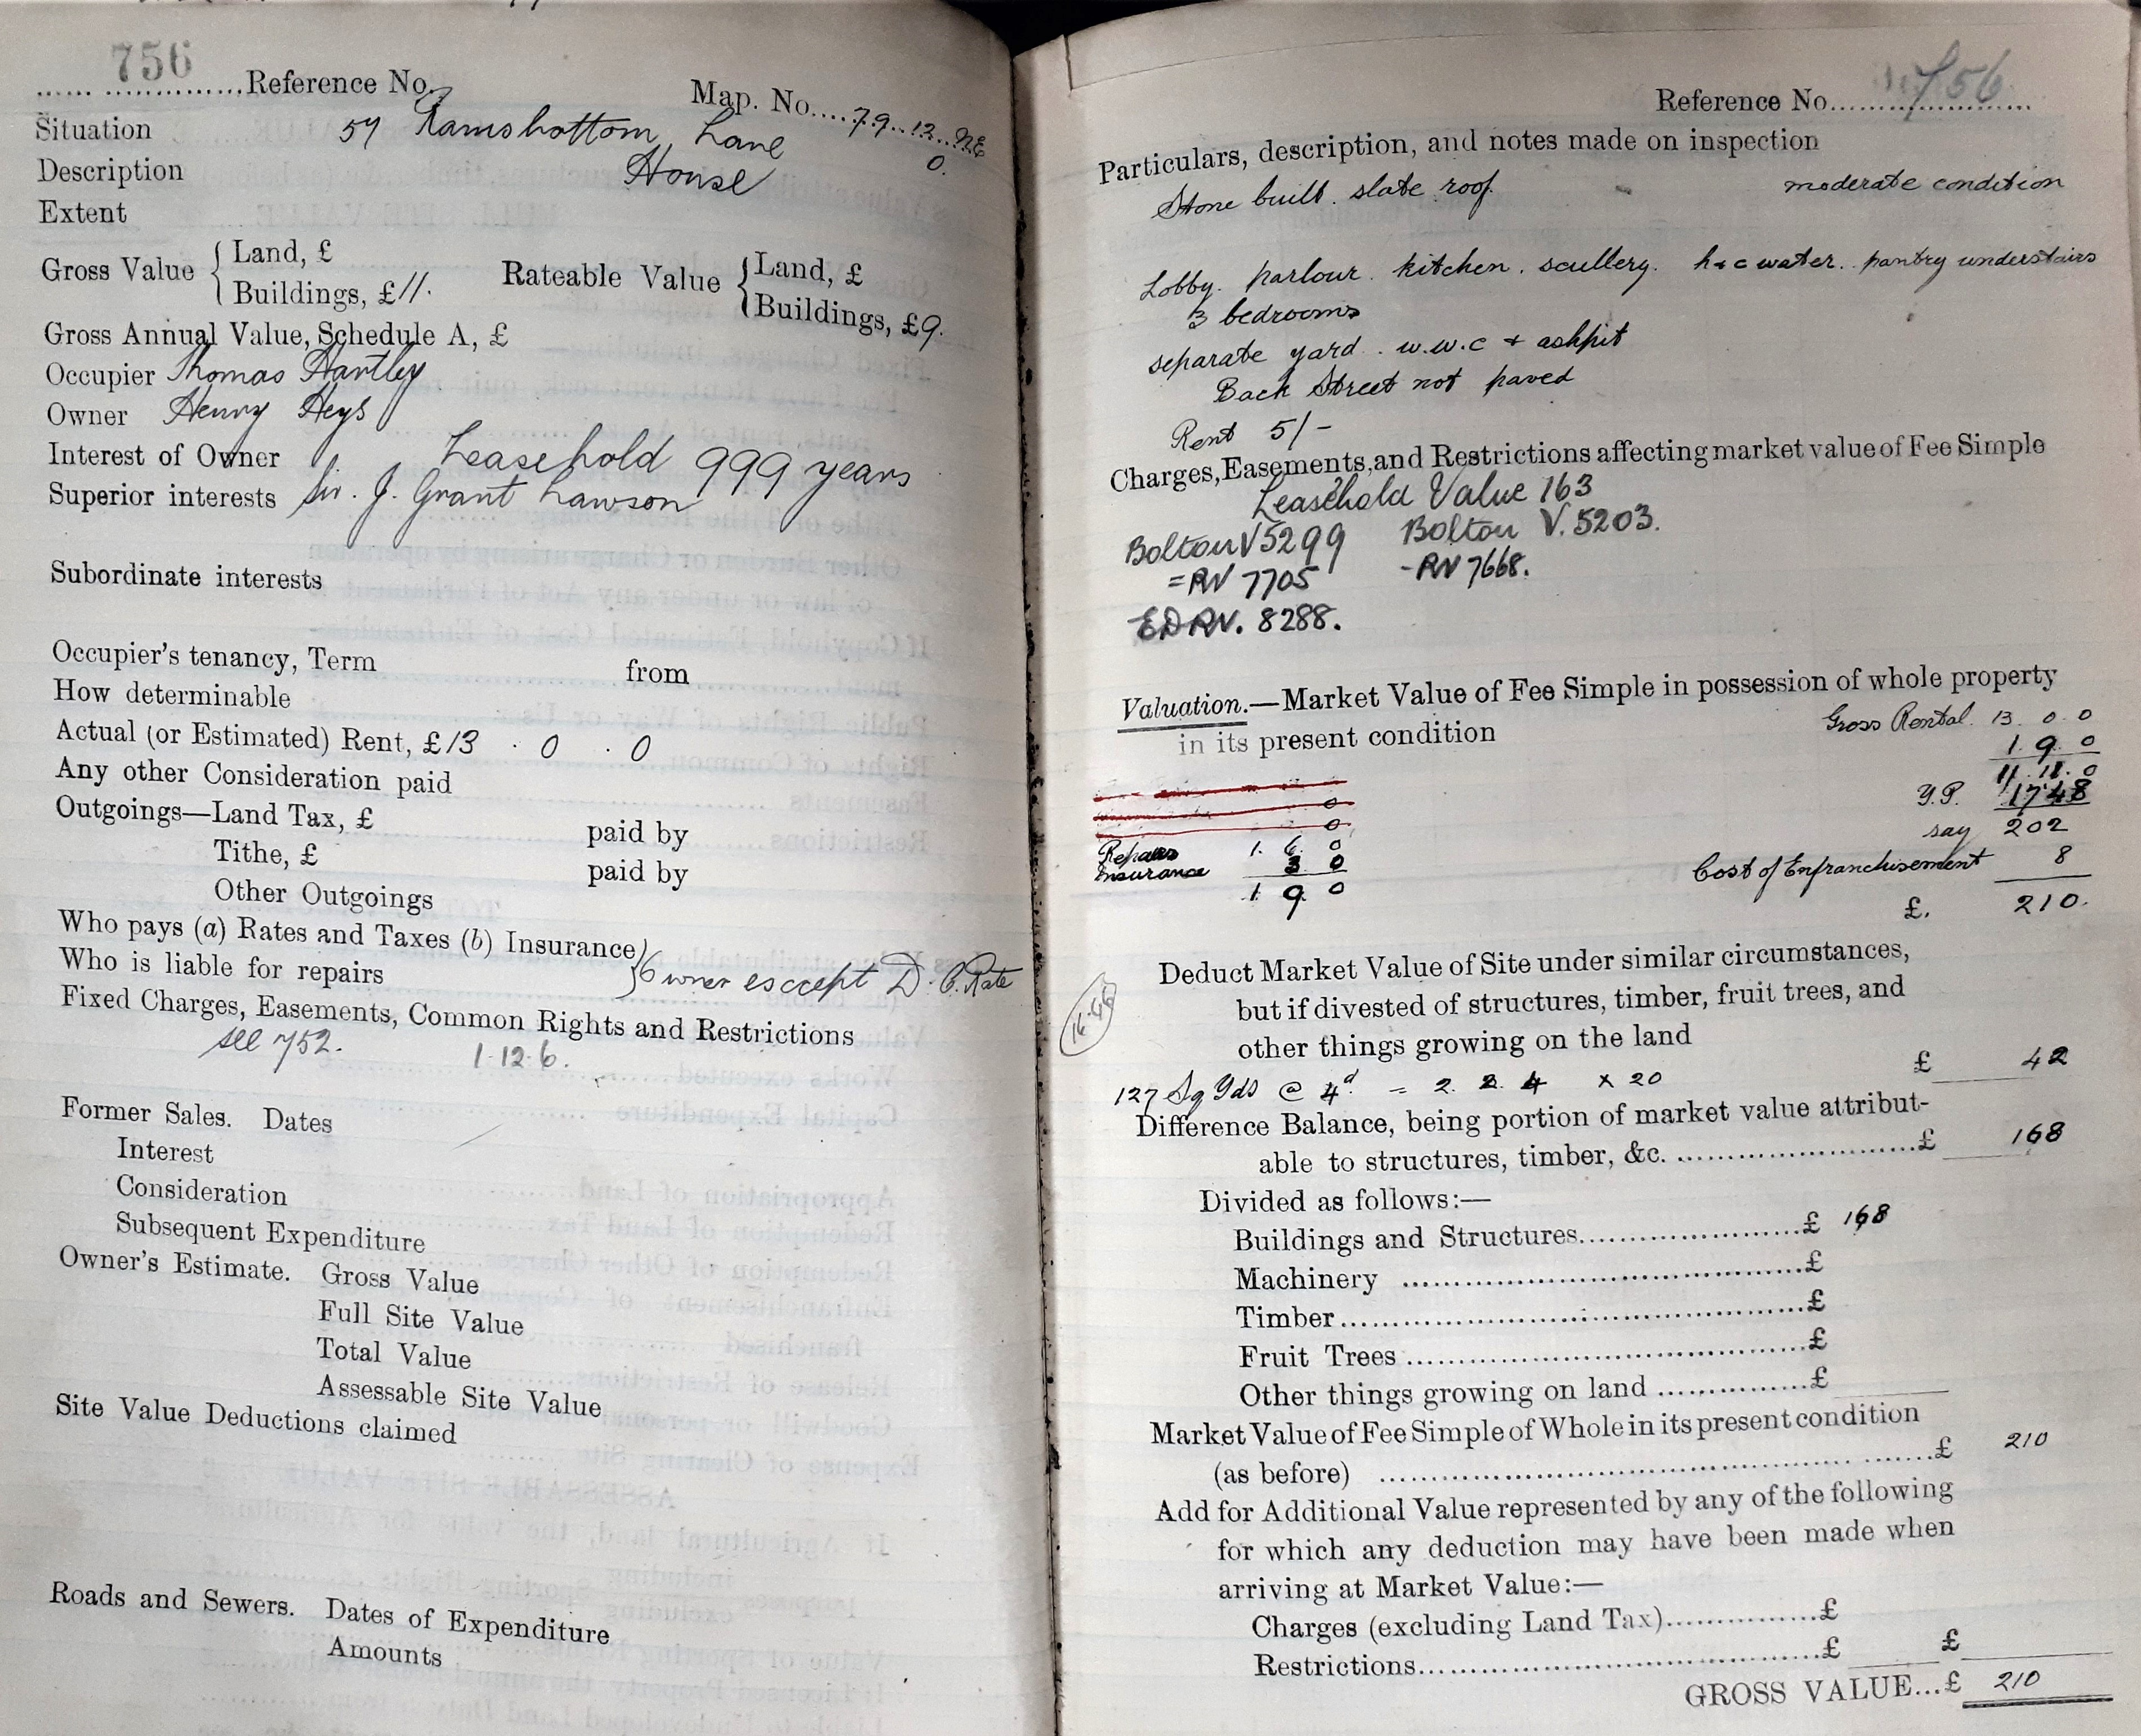 756
Reference No.
Map. No. 79.12. NE
Situation 57 Ramsbottom Lane 0.
Description House
Extent
Gross Value { Land, £
Buildings, £11.
Rateable Value { Land, £
Buildings, £9.
Gross Annual Value, Schedule A, £
Occupier Thomas Hartley
Owner Henry Heys
Interest of Owner Leasehold 999 years
Superior interests Sir. J. Grant Lawson
Subordinate interests
Occupier's tenancy, Term from
How determinable
Actual (or Estimated) Rent, £13 . 0 . 0
Any other Consideration paid
Outgoings—Land Tax, £ paid by
Tithe, £ paid by
Other Outgoings
Who pays (a) Rates and Taxes (b) Insurance
Who is liable for repairs } Owner except D. C. Rate
Fixed Charges, Easements, Common Rights and Restrictions
see 752. 1.12.6.
Former Sales. Dates
Interest
Consideration
Subsequent Expenditure
Owner's Estimate. Gross Value
Full Site Value
Total Value
Assessable Site Value
Site Value Deductions claimed
Roads and Sewers. Dates of Expenditure
Amounts
Reference No. 756
Particulars, description, and notes made on inspection
Stone built. slate roof. moderate condition
Lobby. parlour. kitchen. scullery. h & c water. pantry understairs
3 bedrooms
separate yard. w.w.c & ashpit
Back Street not paved
Rent 5/-
Charges, Easements, and Restrictions affecting market value of Fee Simple
Leasehold Value 163
Bolton V5299 Bolton V.5203.
=RV 7705 -RV 7668.
EDRV. 8288.
Valuation.—Market Value of Fee Simple in possession of whole property
in its present condition
Gross Rental. 13. 0. 0
1. 9. 0
11. 11. 0
Y.P. 17½
say 202
Repairs 1. 6. 0
Insurance 3. 0
1. 9. 0
Cost of Enfranchisement 8
£. 210.
Deduct Market Value of Site under similar circumstances,
but if divested of structures, timber, fruit trees, and
other things growing on the land £ 42
127 Sq Yds @ 4d = 2. 2. 4 x 20
Difference Balance, being portion of market value attribut-
able to structures, timber, &c. £ 168
Divided as follows:—
Buildings and Structures £ 168
Machinery £
Timber £
Fruit Trees £
Other things growing on land £
Market Value of Fee Simple of Whole in its present condition
(as before) £ 210
Add for Additional Value represented by any of the following
for which any deduction may have been made when
arriving at Market Value:—
Charges (excluding Land Tax) £
Restrictions £ £
GROSS VALUE...£ 210